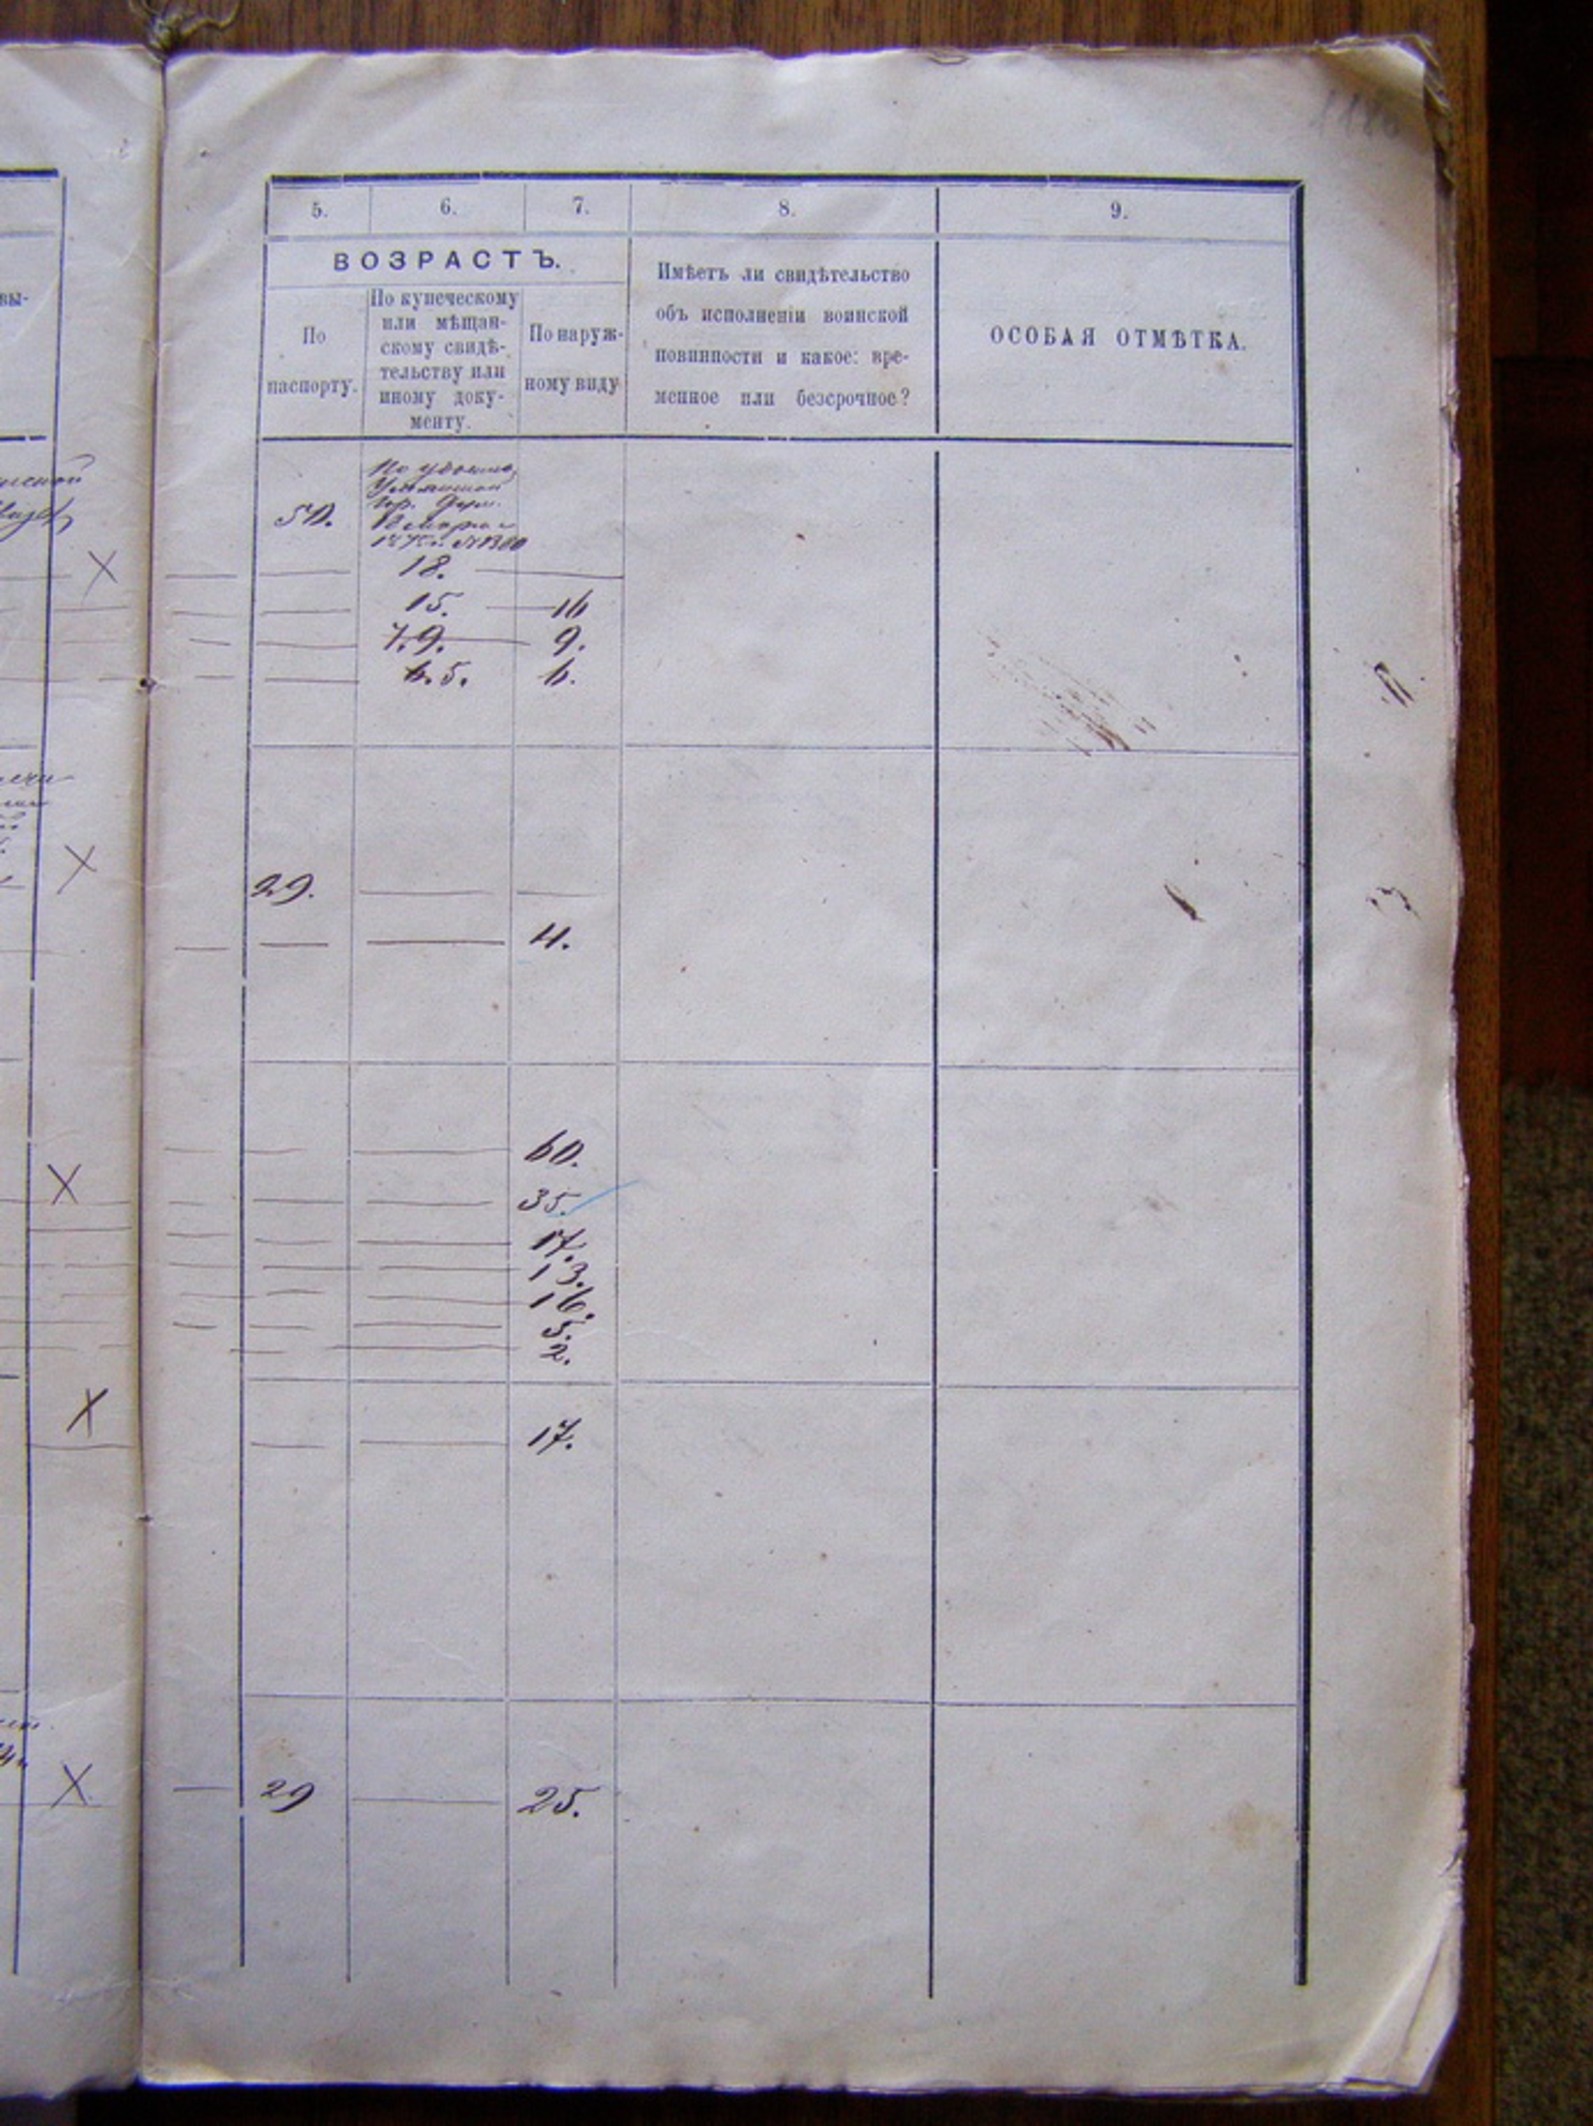 5. 6. 7. 8. 9.
ВОЗРАСТЪ.
По
паспорту.
По купеческому
или мѣщан-
скому свидѣ-
тельству или
иному доку-
менту.
По наруж-
ному виду
Имѣетъ ли свидѣтельство
объ исполненіи воинской
повинности и какое: вре-
менное или безсрочное?
ОСОБАЯ ОТМѢТКА.
вы-
По
50.
18.
15. 16
7. 9. 9.
6. 5. 6.
29.
4.
60.
35.
17.
13.
16.
5.
2.
17.
29 25.